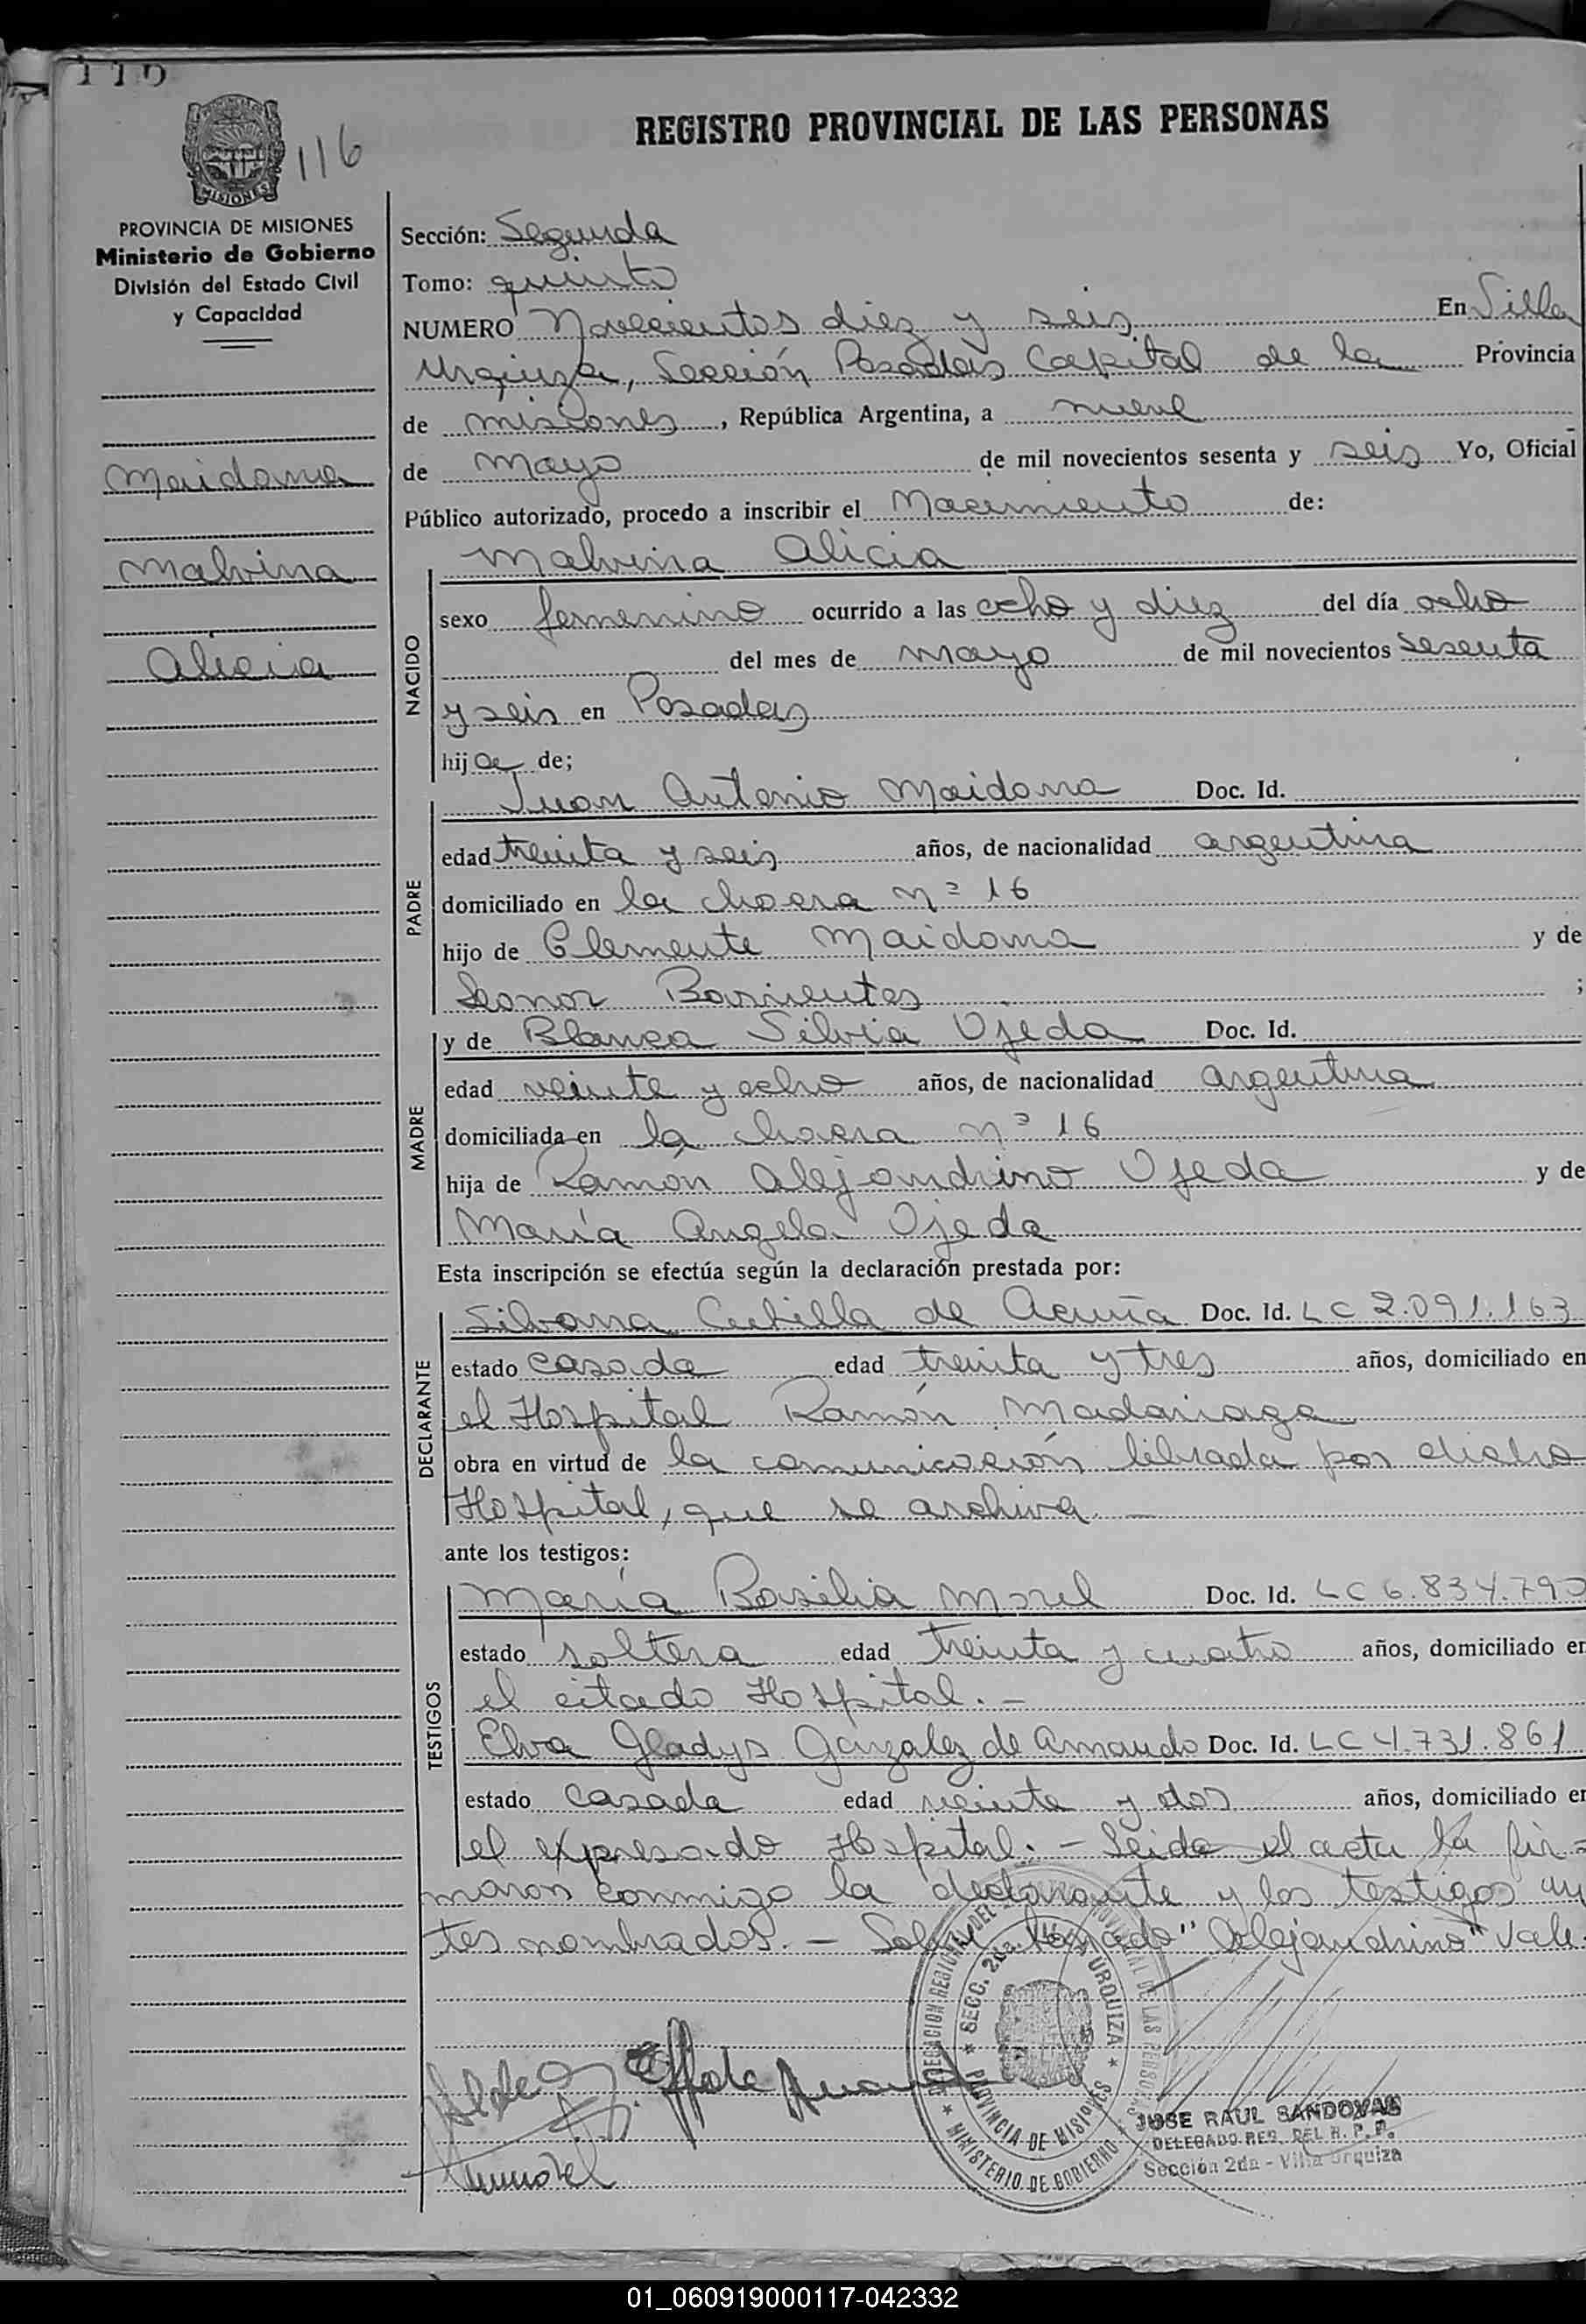 116
REGISTRO PROVINCIAL DE LAS PERSONAS
MISIONES
PROVINCIA DE MISIONES
Ministerio de Gobierno
División del Estado Civil
y Capacidad
Maidana
Malvina
Alicia
Sección: Segunda
Tomo: quinto
NUMERO Novecientos diez y seis En Villa
Urquiza, Sección Posadas Capital de la Provincia
de misiones, República Argentina, a nueve
de mayo de mil novecientos sesenta y seis Yo, Oficial
Público autorizado, procedo a inscribir el Nacimiento de:
NACIDO
Malvina Alicia
sexo femenino ocurrido a las ocho y diez del día ocho
del mes de mayo de mil novecientos sesenta
y seis en Posadas
hija de;
PADRE
Juan Antonio Maidana Doc. Id.
edad treinta y seis años, de nacionalidad argentina
domiciliado en la chacra nº 16
hijo de Clemente Maidana y de
Leonor Barrientos ;
MADRE
y de Blanca Silvia Ojeda Doc. Id.
edad veinte y ocho años, de nacionalidad argentina
domiciliada en la chacra nº 16
hija de Ramón Alejandrino Ojeda y de
María Angela Ojeda
Esta inscripción se efectúa según la declaración prestada por:
DECLARANTE
Silvana Cubilla de Acuña Doc. Id. LC 2.091.163
estado casada edad treinta y tres años, domiciliado en
el Hospital Ramón Madariaga
obra en virtud de la comunicación librada por dicho
Hospital, que se archiva. —
ante los testigos:
TESTIGOS
María Basilia Morel Doc. Id. LC 6.834.790
estado soltera edad treinta y cuatro años, domiciliado en
el citado Hospital. —
Elva Gladys Gonzalez de Amando Doc. Id. LC 4.731.861
estado casada edad veinte y dos años, domiciliado en
el expresado Hospital. — Leida el acta la fir=
maron conmigo la declarante y los testigos an
tes nombrados. — Sobre borrado "Alejandrino" Vale.
DELEGACION REGIONAL DEL REGISTRO PROVINCIAL DE LAS PERSONAS
SECC. 2da. VILLA URQUIZA
PROVINCIA DE MISIONES
MINISTERIO DE GOBIERNO
JOSE RAUL SANDOVAL
DELEGADO REG. DEL R. P. P.
Sección 2da - Villa Urquiza
01_060919000117-042332